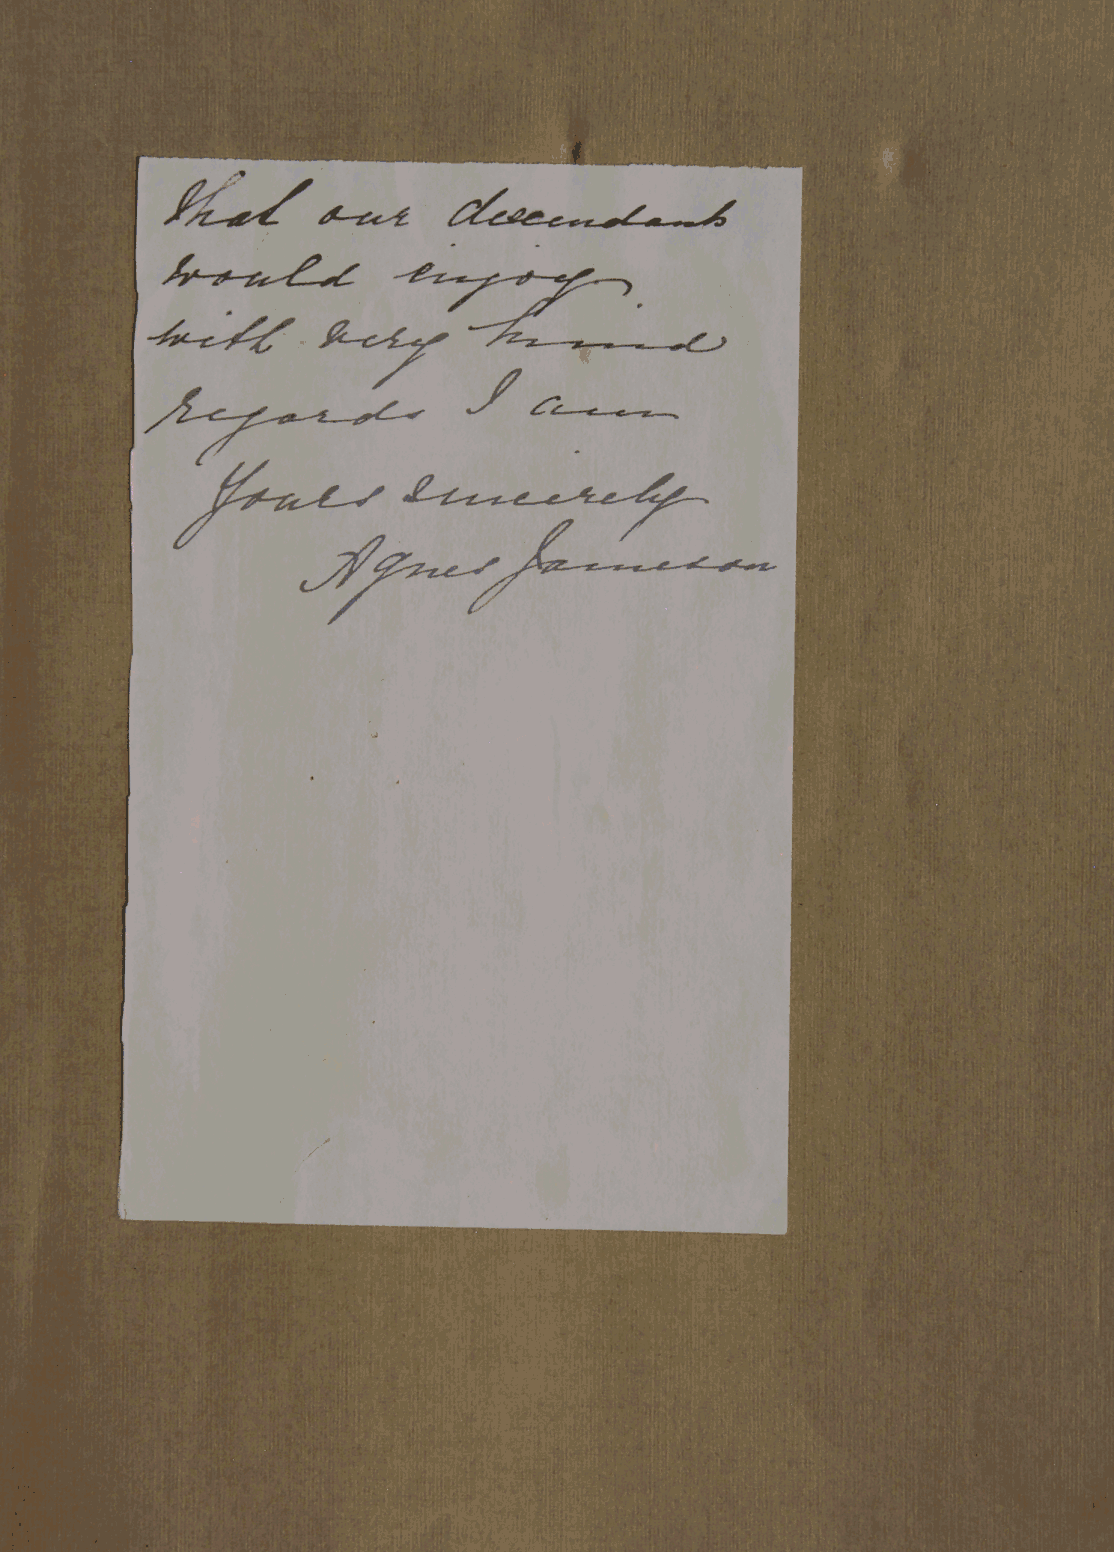 that our descendants
would enjoy.
with very kind
regards I am
Yours sincerely
Agnes Jameson